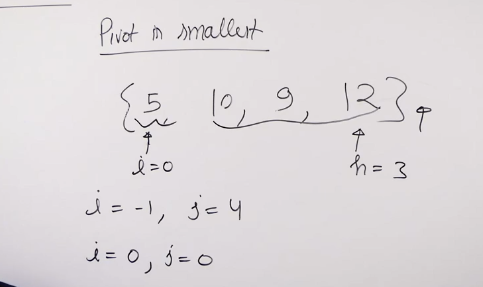 Pivot is smallest
{5 10, 9, 12}
l=0 h=3
i = -1, j=4
i=0, j=0